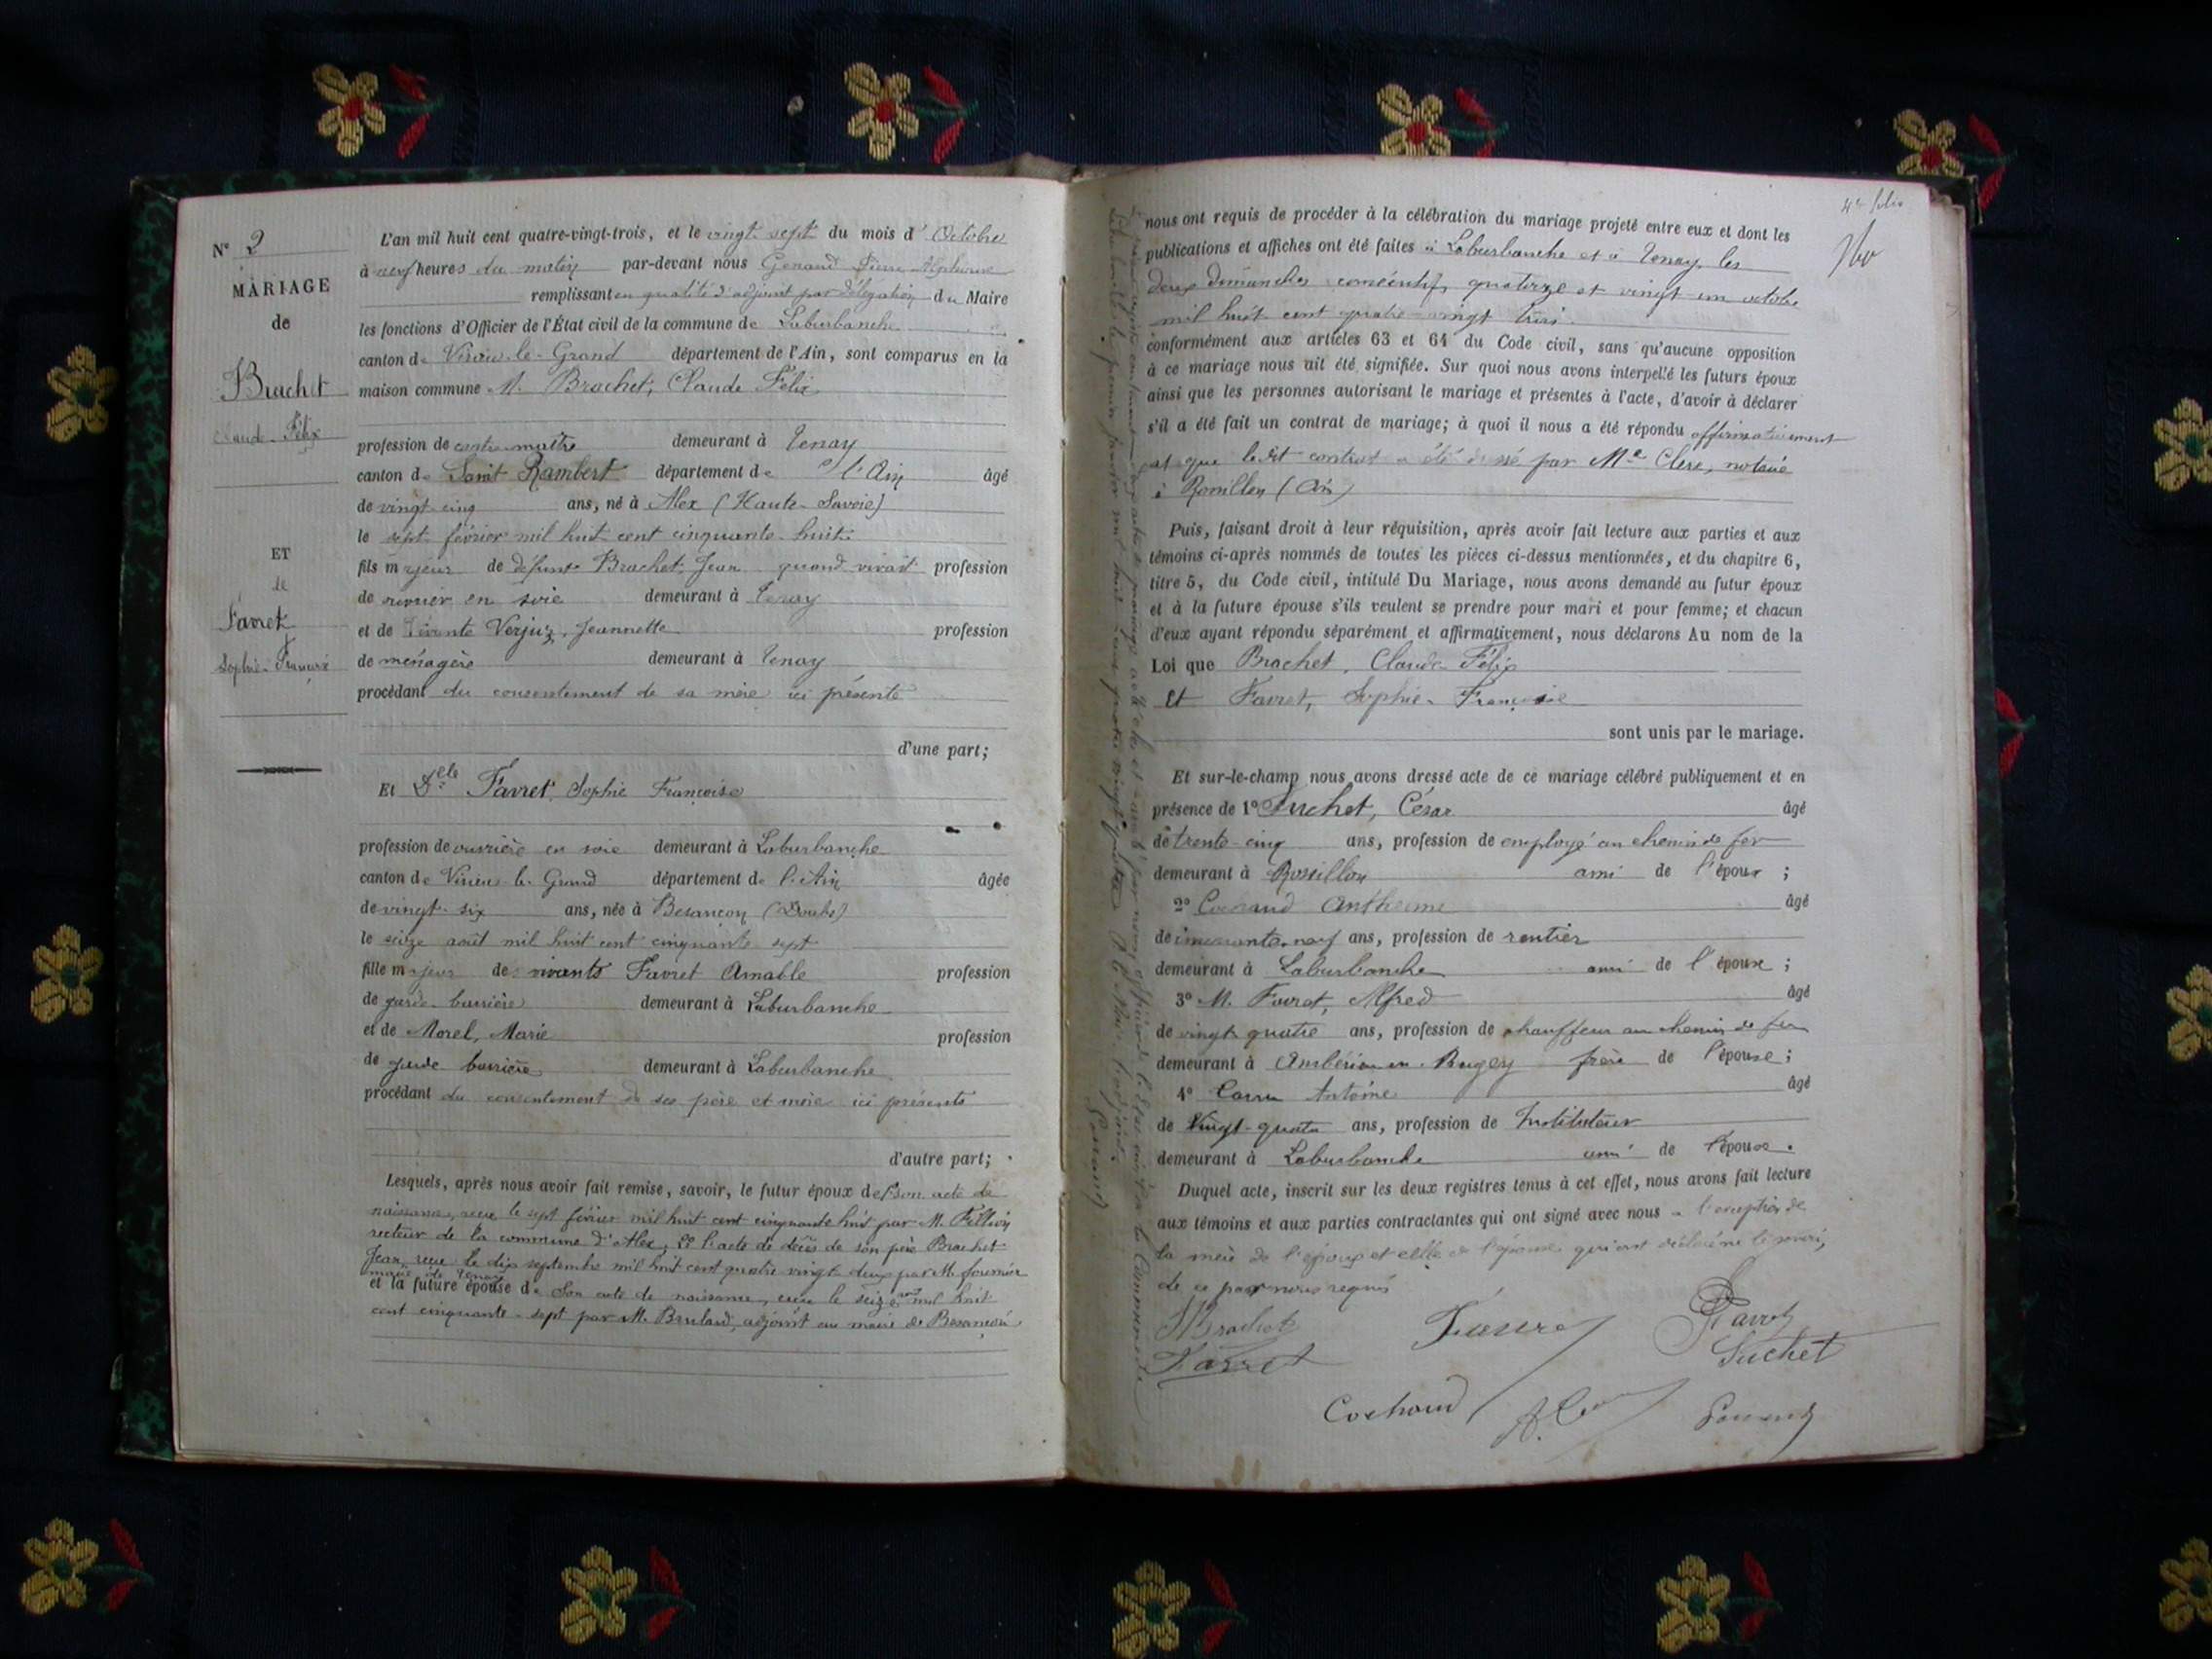 N° 2
MARIAGE
de
Brachet
Claude-Félix
ET
de
Favret
Sophie-Françoise
L'an mil huit cent quatre-vingt-trois, et le vingt-sept du mois d'Octobre
à neuf heures du matin par-devant nous Pierre Alphonse
remplissant en qualité d'adjoint par délégation du Maire
les fonctions d'Officier de l'État civil de la commune de Laburbanche
canton de Virieu-le-Grand département de l'Ain, sont comparus en la
maison commune M. Brachet, Claude Félix
profession de contre-maître demeurant à Tenay
canton de Saint Rambert département de l'Ain âgé
de vingt-cinq ans, né à Alex (Haute-Savoie)
le sept février mil huit cent cinquante-huit
fils majeur de défunt Brachet, Jean quand vivait profession
de ouvrier en soie demeurant à Tenay
et de vivante Verjuz, Jeannette profession
de ménagère demeurant à Tenay
procédant du consentement de sa mère ici présente
d'une part;
Et Delle Favret, Sophie Françoise
profession de ouvrière en soie demeurant à Laburbanche
canton de Virieu-le-Grand département de l'Ain âgée
de vingt-six ans, née à Besançon (Doubs)
le seize août mil huit cent cinquante sept
fille majeur de vivants Favret Amable profession
de garde-barrière demeurant à Laburbanche
et de Morel, Marie profession
de garde barrière demeurant à Laburbanche
procédant du consentement de ses père et mère ici présents
d'autre part;
Lesquels, après nous avoir fait remise, savoir, le futur époux de 1° son acte de
naissance, reçu le sept février mil huit cent cinquante huit par M.
recteur de la commune d'Alex, 2° l'acte de décès de son père Brachet
Jean, reçu le dix septembre mil huit cent quatre vingt deux par M. fournier
maire de Tenay
et la future épouse de son acte de naissance, reçu le seize août mil huit
cent cinquante-sept par M. Brulard, adjoint au maire de Besançon
4e folio
nous ont requis de procéder à la célébration du mariage projeté entre eux et dont les
publications et affiches ont été faites à Laburbanche et à Tenay, les
deux dimanches consécutifs quatorze et vingt-un octobre
mil huit cent quatre-vingt trois.
conformément aux articles 63 et 64 du Code civil, sans qu'aucune opposition
à ce mariage nous ait été signifiée. Sur quoi nous avons interpellé les futurs époux
ainsi que les personnes autorisant le mariage et présentes à l'acte, d'avoir à déclarer
s'il a été fait un contrat de mariage; à quoi il nous a été répondu affirmativement
et que ledit contrat a été dressé par Me Clerc, notaire
à Rossillon (Ain)
Puis, faisant droit à leur réquisition, après avoir fait lecture aux parties et aux
témoins ci-après nommés de toutes les pièces ci-dessus mentionnées, et du chapitre 6,
titre 5, du Code civil, intitulé Du Mariage, nous avons demandé au futur époux
et à la future épouse s'ils veulent se prendre pour mari et pour femme; et chacun
d'eux ayant répondu séparément et affirmativement, nous déclarons Au nom de la
Loi que Brachet, Claude-Félix
et Favret, Sophie-Françoise
sont unis par le mariage.
Et sur-le-champ nous avons dressé acte de ce mariage célébré publiquement et en
présence de 1° Suchet, César âgé
de trente-cinq ans, profession de employé au chemin de fer
demeurant à Rossillon ami de l'époux ;
2° Anthelme âgé
de ans, profession de rentier
demeurant à Laburbanche ami de l'épouse ;
3° M. Favret, Alfred âgé
de vingt quatre ans, profession de chauffeur au chemin de fer
demeurant à Ambérieu-en-Bugey frère de l'épouse ;
4° Antoine âgé
de vingt-quatre ans, profession de Instituteur
demeurant à Laburbanche ami de l'épouse.
Duquel acte, inscrit sur les deux registres tenus à cet effet, nous avons fait lecture
aux témoins et aux parties contractantes qui ont signé avec nous à l'exception de
la mère de l'époux et celle de l'épouse qui ont déclaré ne le savoir,
de ce par nous requis
Brachet
Favret
Suchet
Favret
Cochoud